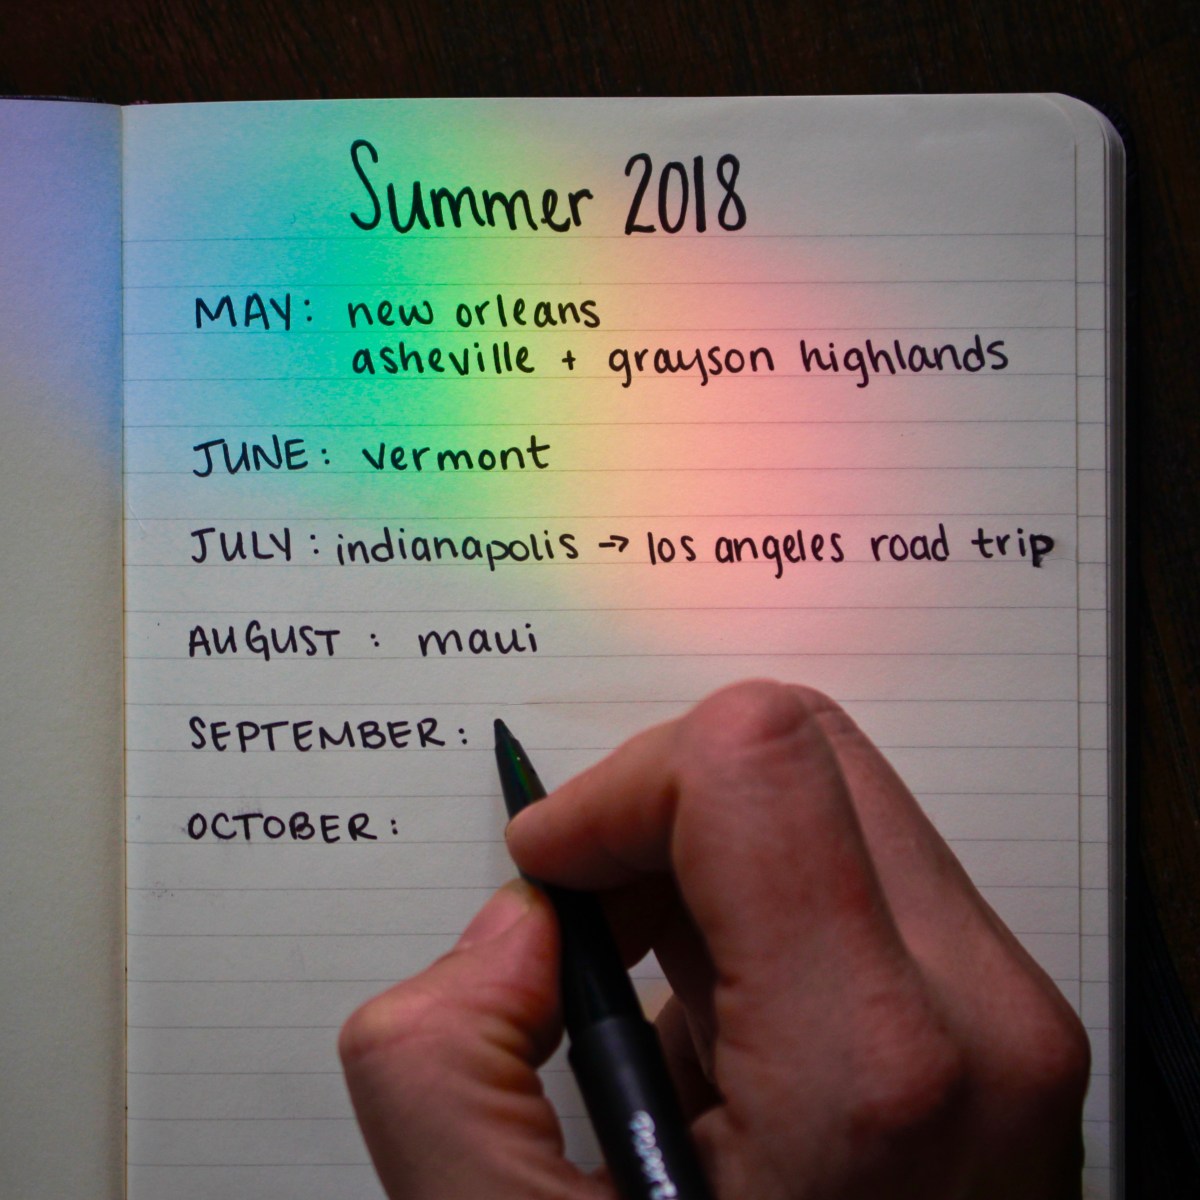 Summer 2018
MAY: new orleans
asheville + grayson highlands
JUNE: vermont
JULY: indianapolis → los angeles road trip
AUGUST : maui
SEPTEMBER:
OCTOBER: